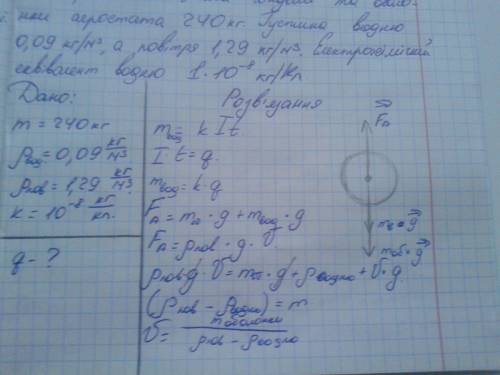 нки аеростата 240 кг. Густина водню
0,09 кг/м³, а повітря 1,29 кг/м³. Електрохімічний
еквівалент водню 1·10⁻⁸ кг/Кл
Дано:
m = 240 кг
ρвод = 0,09 кг/м³
ρпов = 1,29 кг/м³
k = 10⁻⁸ кг/кл.
q - ?
Розв'язання
mвод = k I t
I · t = q.
mвод = k · q
F_A = m · g + mвод · g
F_A = ρпов · g · V
ρпов g V = m · g + ρводню · V · g
(ρпов − ρводню) = m
V = mоболонки / ρпов − ρводню
F_A
g
mоб · g